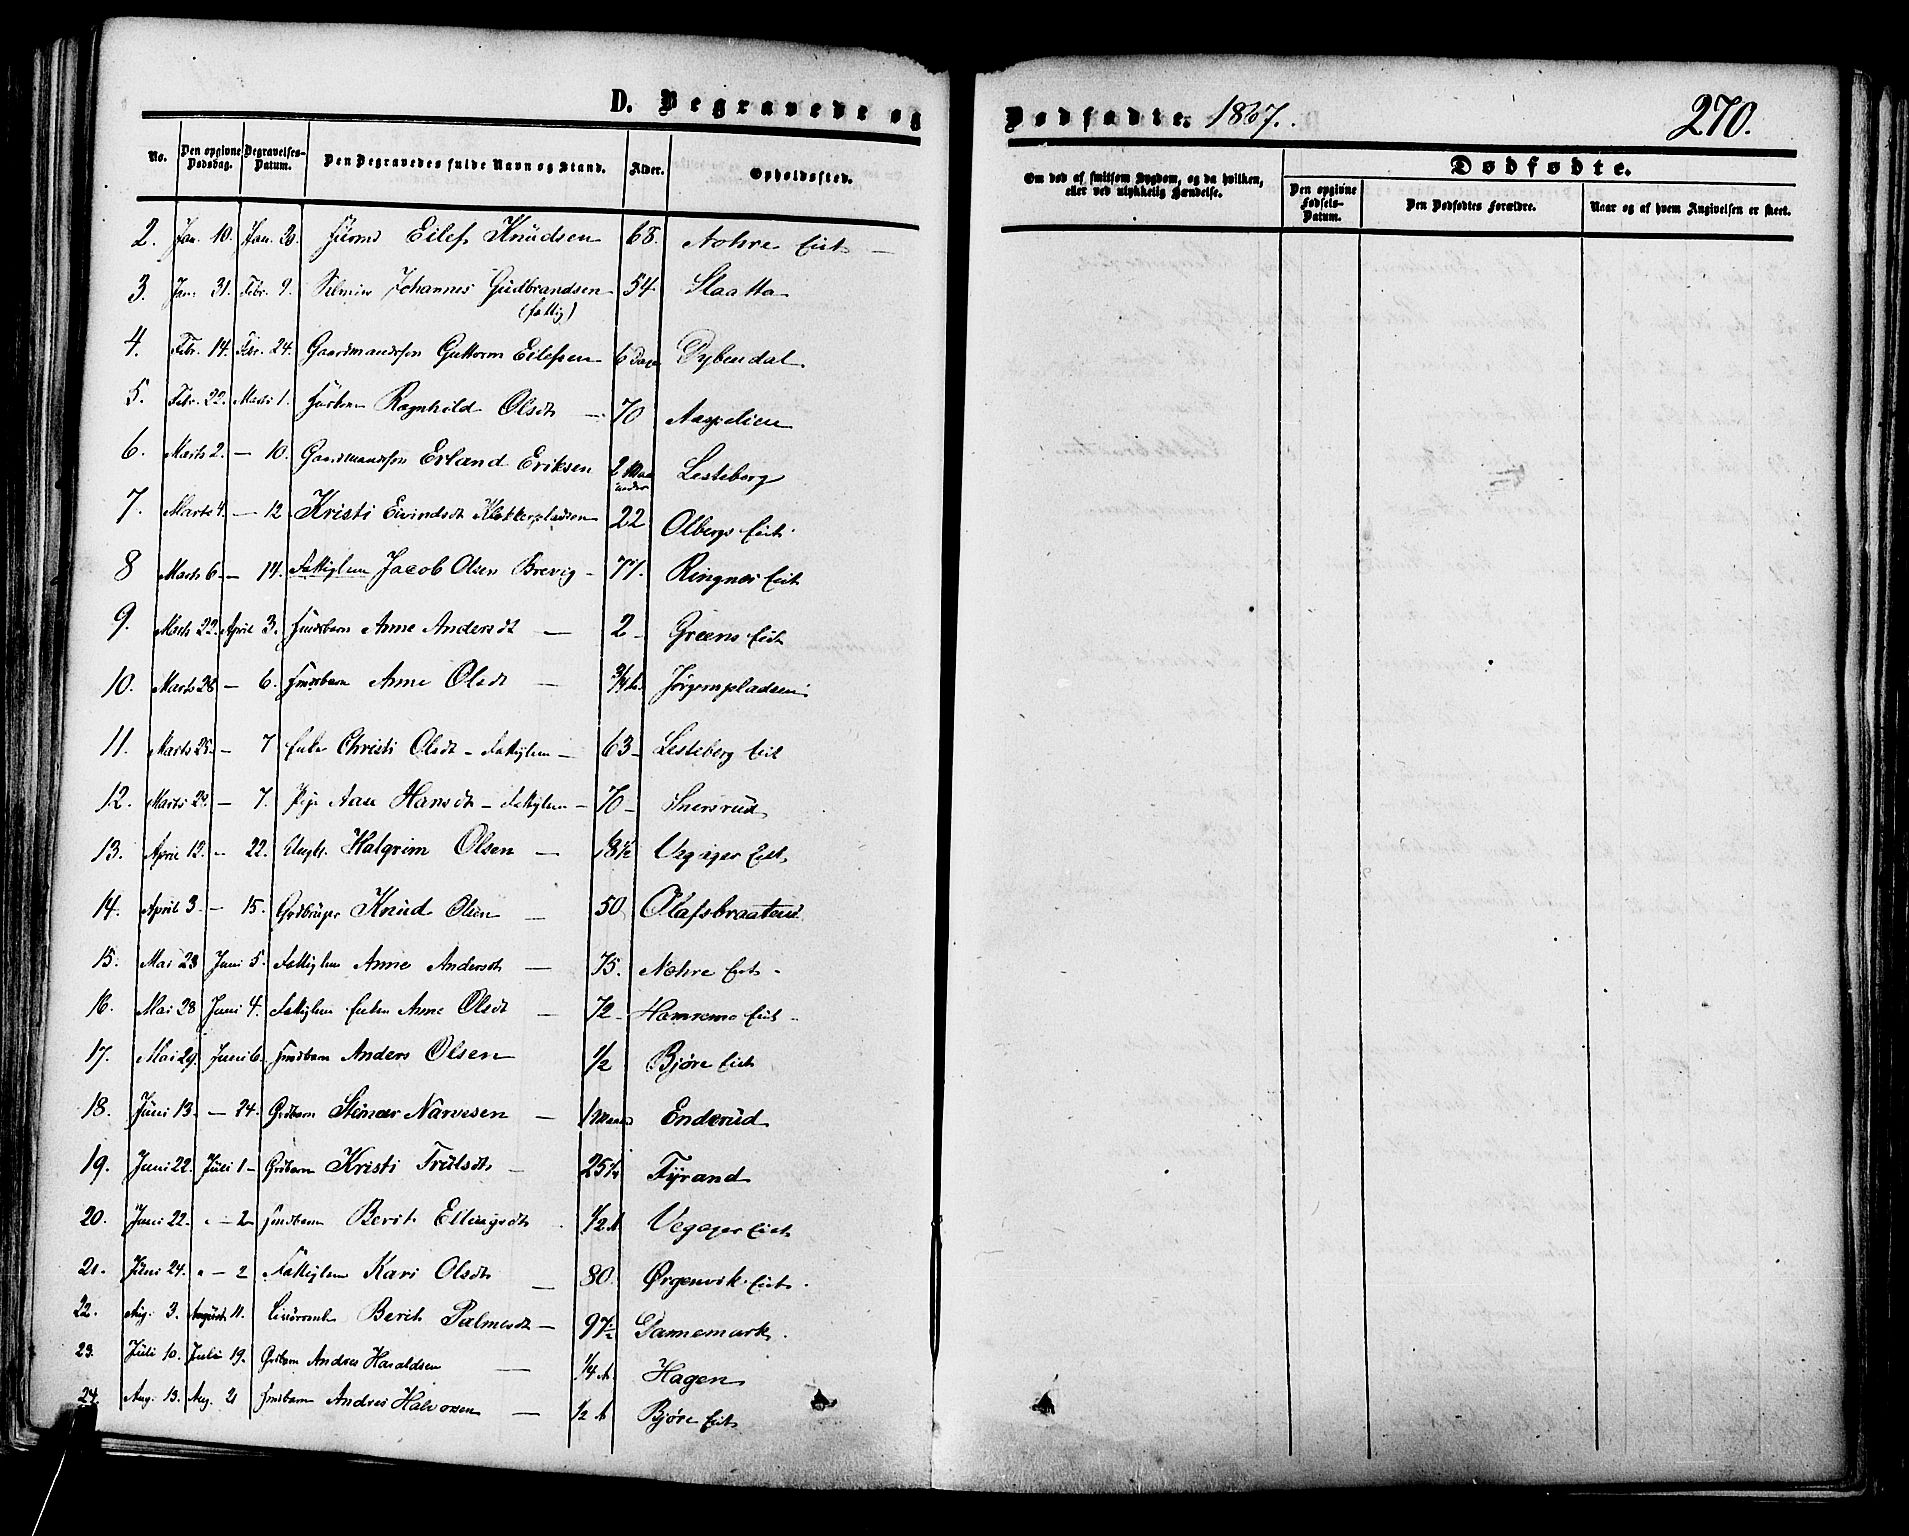 D. Begravede og Dødfødte. 1867. 270.
No. Den opgivne Dødsdag. Begravelses-Datum. Den Begravedes fulde Navn og Stand. Alder. Opholdssted. Om død af smitsom Sygdom, og da hvilken, eller ved ulykkelig Hændelse. Dødfødte. Den opgivne Fødsels-Datum. Den Dødfødtes Forældre. Naar og af hvem Angivelsen er skeet.
2. Jan. 10. Jan. 20. Eilef Knudsen 68. Nohre Eiet —
3. Jan. 31. Febr. 9. Johannes Gudbrandsen 54 Slaatta
(fattig)
4. Febr. 14. Febr. 24. Gaardmandssøn Guttorm Eilefsen 6 Dage Dybendal.
5. Febr. 22. Marts 1. Ragnhild Olsdt — 70 Aaspelien
6. Marts 2. — 10. Gaardmandssøn Erland Eriksen 2 Maaneder Lesteberg
7. Marts 4. — 12. Kristi Eivindsdt Klokkerpladsen 22 Olbergs Eiet.
8 Marts 6. — 14. Fattiglem Jacob Olsen Brevig — 77. Ringnes Eiet
9. Marts 22. April 3. Huusbarn Anne Andersdt — 2 — Greens Eiet
10. Marts 28 — 6. Huusbarn Anne Olsdt — 3/4 A. Jørgenspladsen
11. Marts 28. — 7 Enke Christi Olsdt — Fattiglem — 63 — Lesteberg Eiet
12. Marts 29. — 7. Pige Aase Hansdt — Fattiglem — 70 — Snersrud
13. April 12. — 22. Ungk. Halgrim Olsen — 18 1/2 Vegager Eiet
14. April 3. — 15. Gdbruger Knud Olsen — 50 Olafsbraaten
15. Mai 23 Juni 5. Fattiglem Anne Andersdt — 75. Nohre Eiet.
16. Mai 28 Juni 4. Fattiglem Enken Anne Olsdt — 72 — Hamremo Eiet —
17. Mai 29. Juni 6. Huusbarn Anders Olsen 1/2 Bjøre Eiet
18. Juni 13. — 24. Grdbarn Steinar Narvesen — 1 Maaned Enderud
19. Juni 22. Juli 1 — Grdbarn Kristi Trulsdt — 25 Tyrand
20. Juni 22. " — 2 Huusbarn Berit Ellingsdt 1/2 A Vegager Eiet
21. Juni 24. " — 2 Fattiglem Kari Olsdt — 80. Ørgenvik Eiet.
22. Aug. 3. August 11. Berit Palmesdt — 97 1/2 Dannemark.
23. Juli 10. Juli 19. Grdbarn Andres Haraldsen — 1/4 A. Hagen
24. Aug. 13. Aug. 21 Huusbarn Andres Halvorsen — 1/2 A Bjøre Eiet